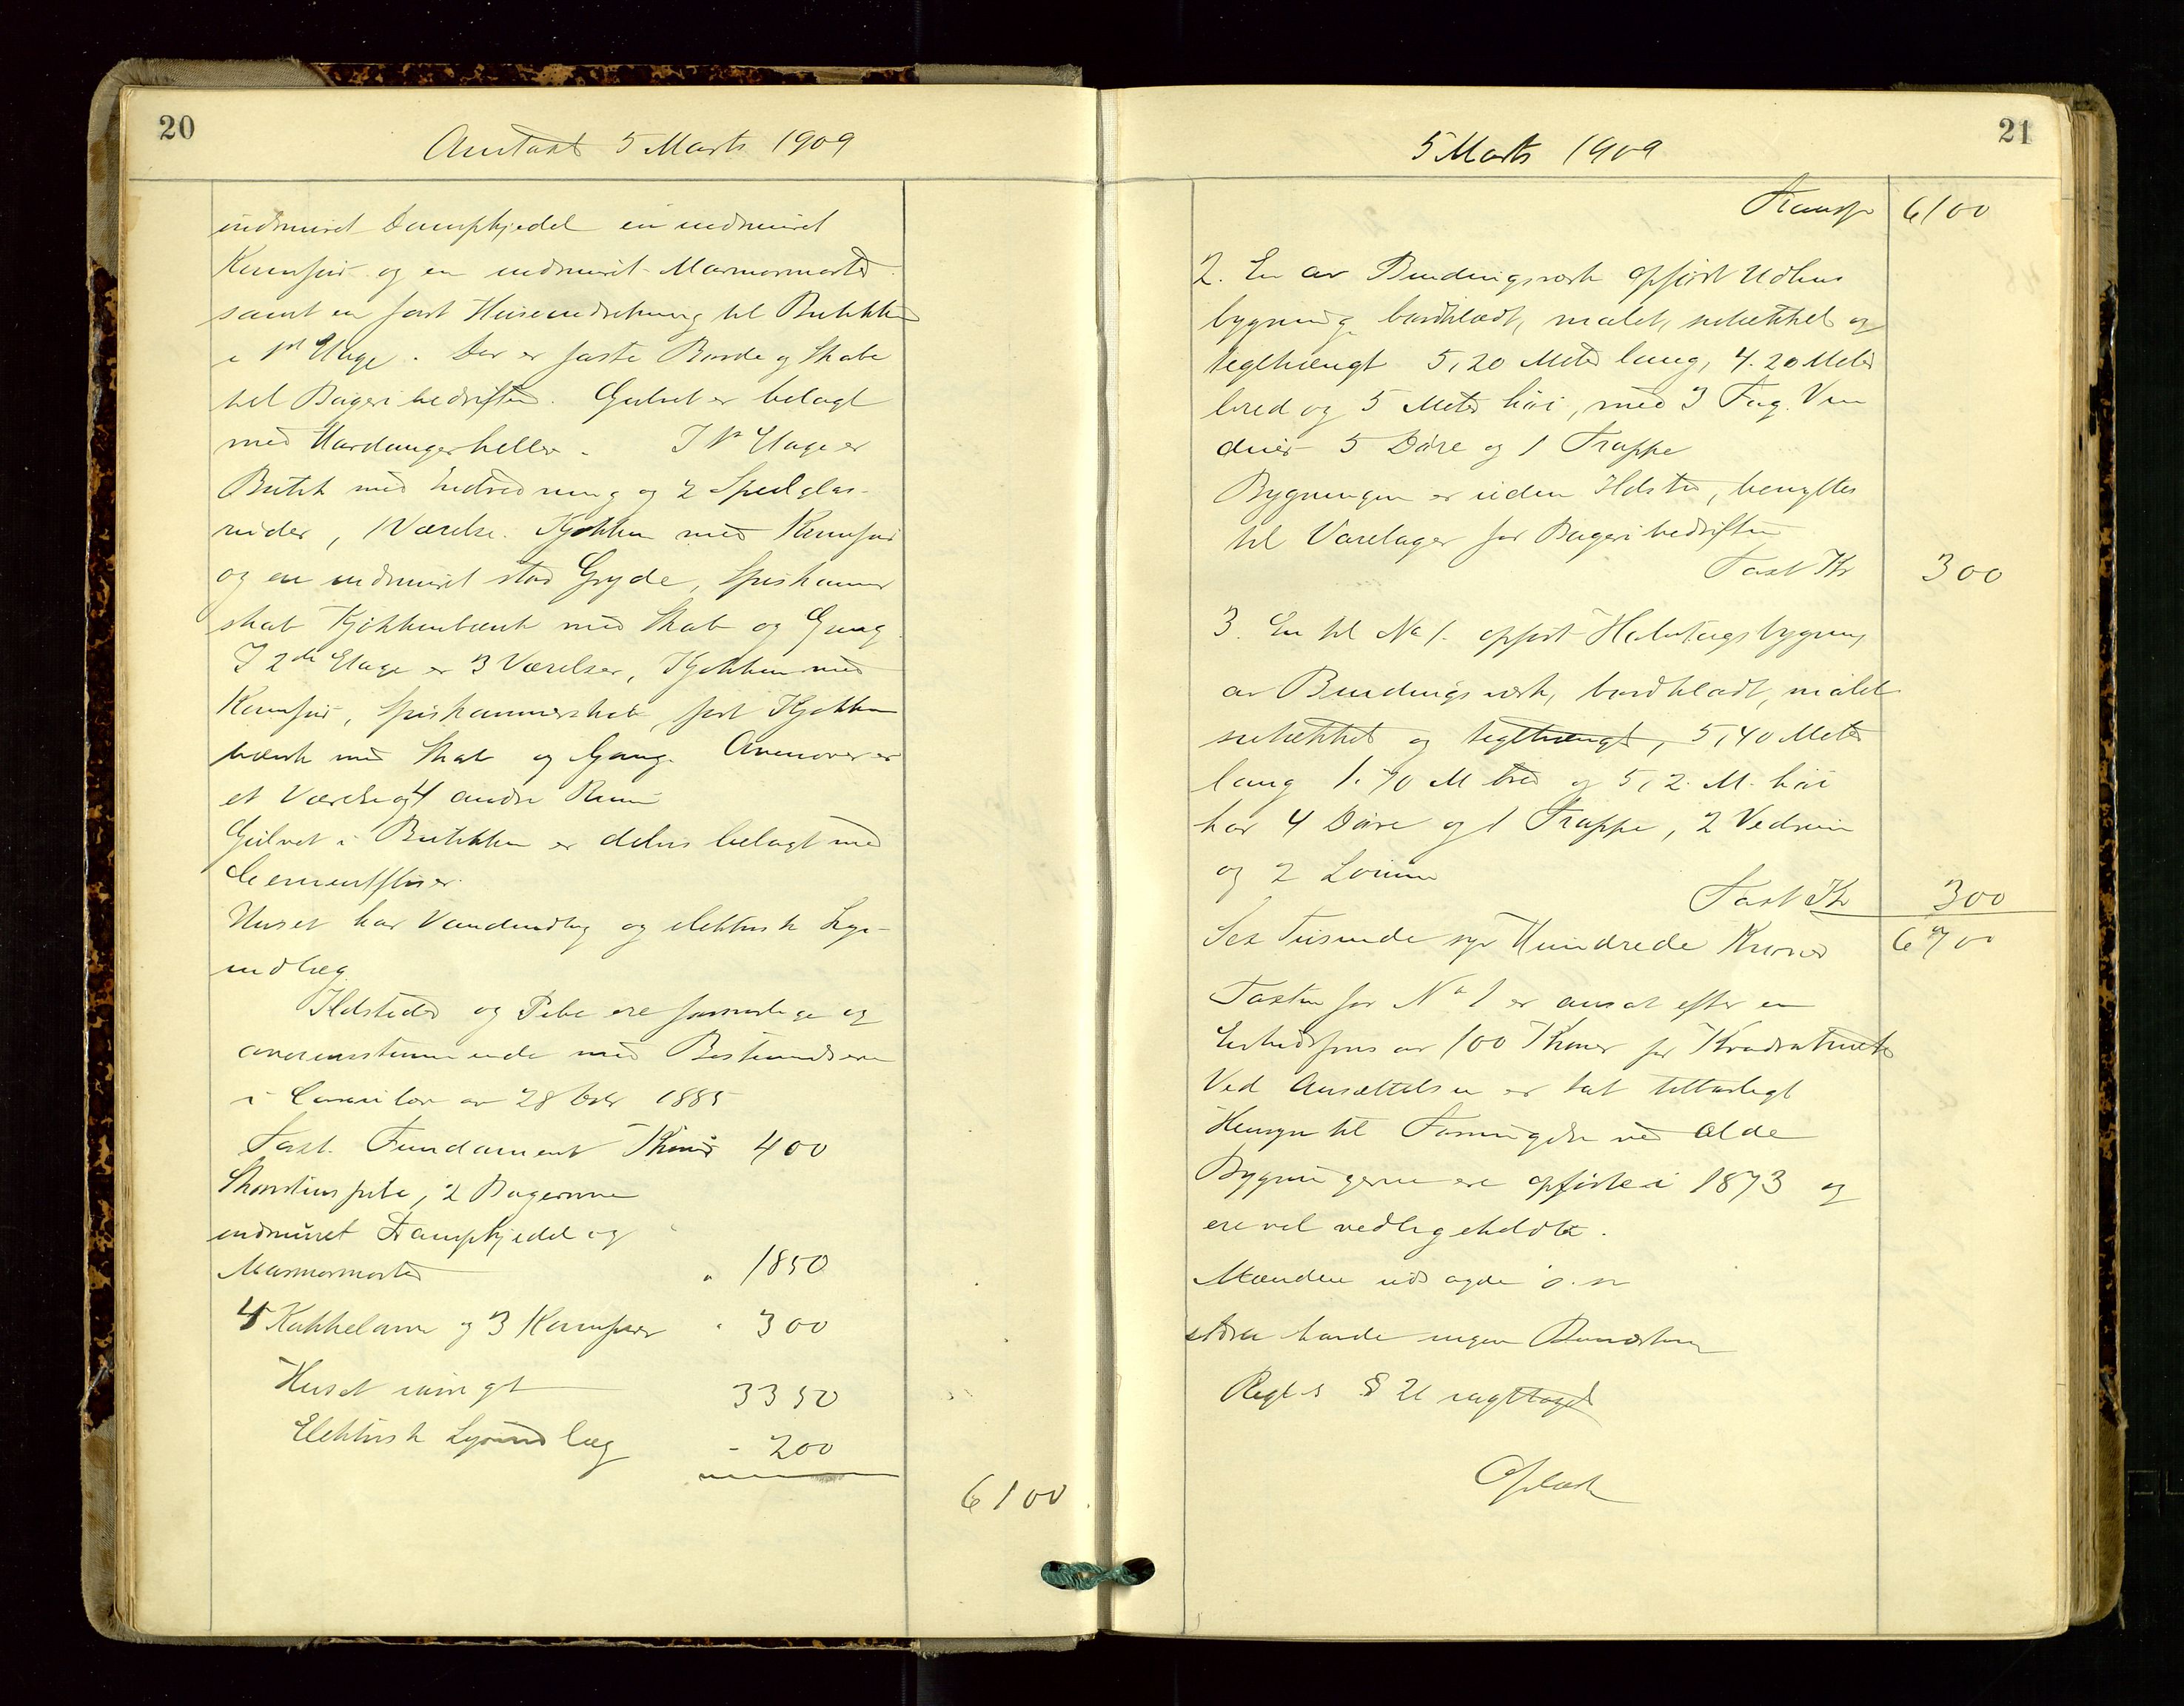 20
Omtaxt 5 Marts 1909
indmuret Dampkjedel en indmuret
Komfur og en indmuret Marmormorter
samt en fast Husindretning til Butikken
i 1ste Etage. Der er faste Borde og Skabe
til Bageribedriften. Gulvet er belagt
med Hardangerheller. I 1ste Etage er
Butik med Indredning og 2 Speilglas-
ruder, 1 Værelse. Kjøkken med Komfur
og en indmuret stor Gryde, Spiskammer
skab Kjøkkenbænk med Skab og Gang
I 2den Etage er 3 Værelser, Kjøkken med
Komfur, Spiskammerskab, fast Kjøkken
bænk med Skab og Gang. Ovenover er
et Værelse og 4 andre Rum
Gulvet i Butikken er delvis belagt med
Cementfliser.
Huset har Vandindlæg og elektrisk Lys-
indlæg.
Ildsteder og Pibe ere forsvarlige og
overensstemmende med Bestemmelserne
i Loven av 28 1885
Taxt. Fundament Kroner 400
Skorstenspibe, 2 Bagerovne
indmuret Dampkjedel og
Marmormorter " 1850
4 Kakkelovne og 3 Komfurer " 300
Huset øvrigt 3350
Elektrisk Lysindlæg - 200
6100
21
5 Marts 1909
Transp 6100
2. En av Bindingsverk opført Udhus
bygning, bordklædt, malet, sutækket og
teglhængt 5,20 Meter lang, 4.20 Meter
bred og 5 Meter høi, med 3 Fag Vin
duer 5 Døre og 1 Trappe
Bygningen er uden Ildsted, benyttes
til Varelager for Bageribedriften
Taxt Kr 300
3. En til No 1. opført Halvtagsbygning
av Bindingsverk, bordklædt, malet
sutækket og teglhængt, 5,40 Meter
lang 1.70 M bred og 5,2 M. høi
har 4 Døre og 1 Trappe, 2 Vedrum
og 2 Lorum
Taxt Kr 300
Sex Tusinde syv Hundrede Kroner 6700
Taxten for No 1 er ansat efter en
Enhedspris av 100 Kroner pr Kvadratmeter
Ved Ansættelsen er tat tilbørligt
Hensyn til Forringelse ved Ælde
Bygningerne ere opførte i 1873 og
ere vel vedligeholdte.
Mændene
havde ingen Bemærkning
Regl.s § 21 iagttaget
Oplæst